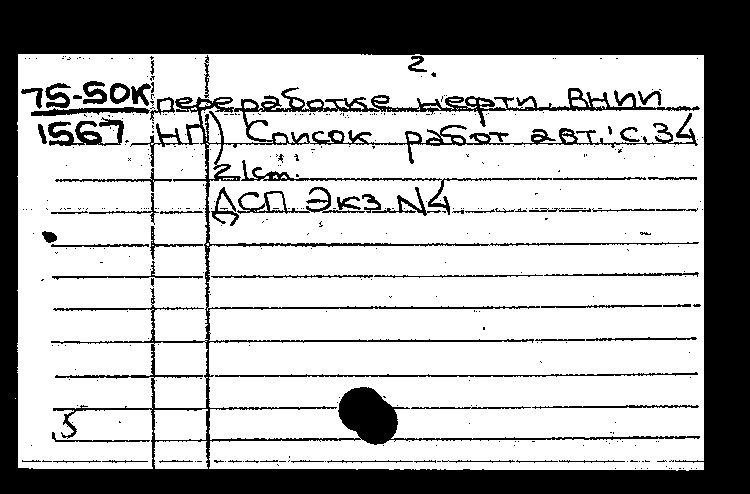 2.
75-50К переработке нефти. ВНИИ
1567 НП). Список работ авт.: с. 34
21 cm.
ДСП. Экз. N4
5